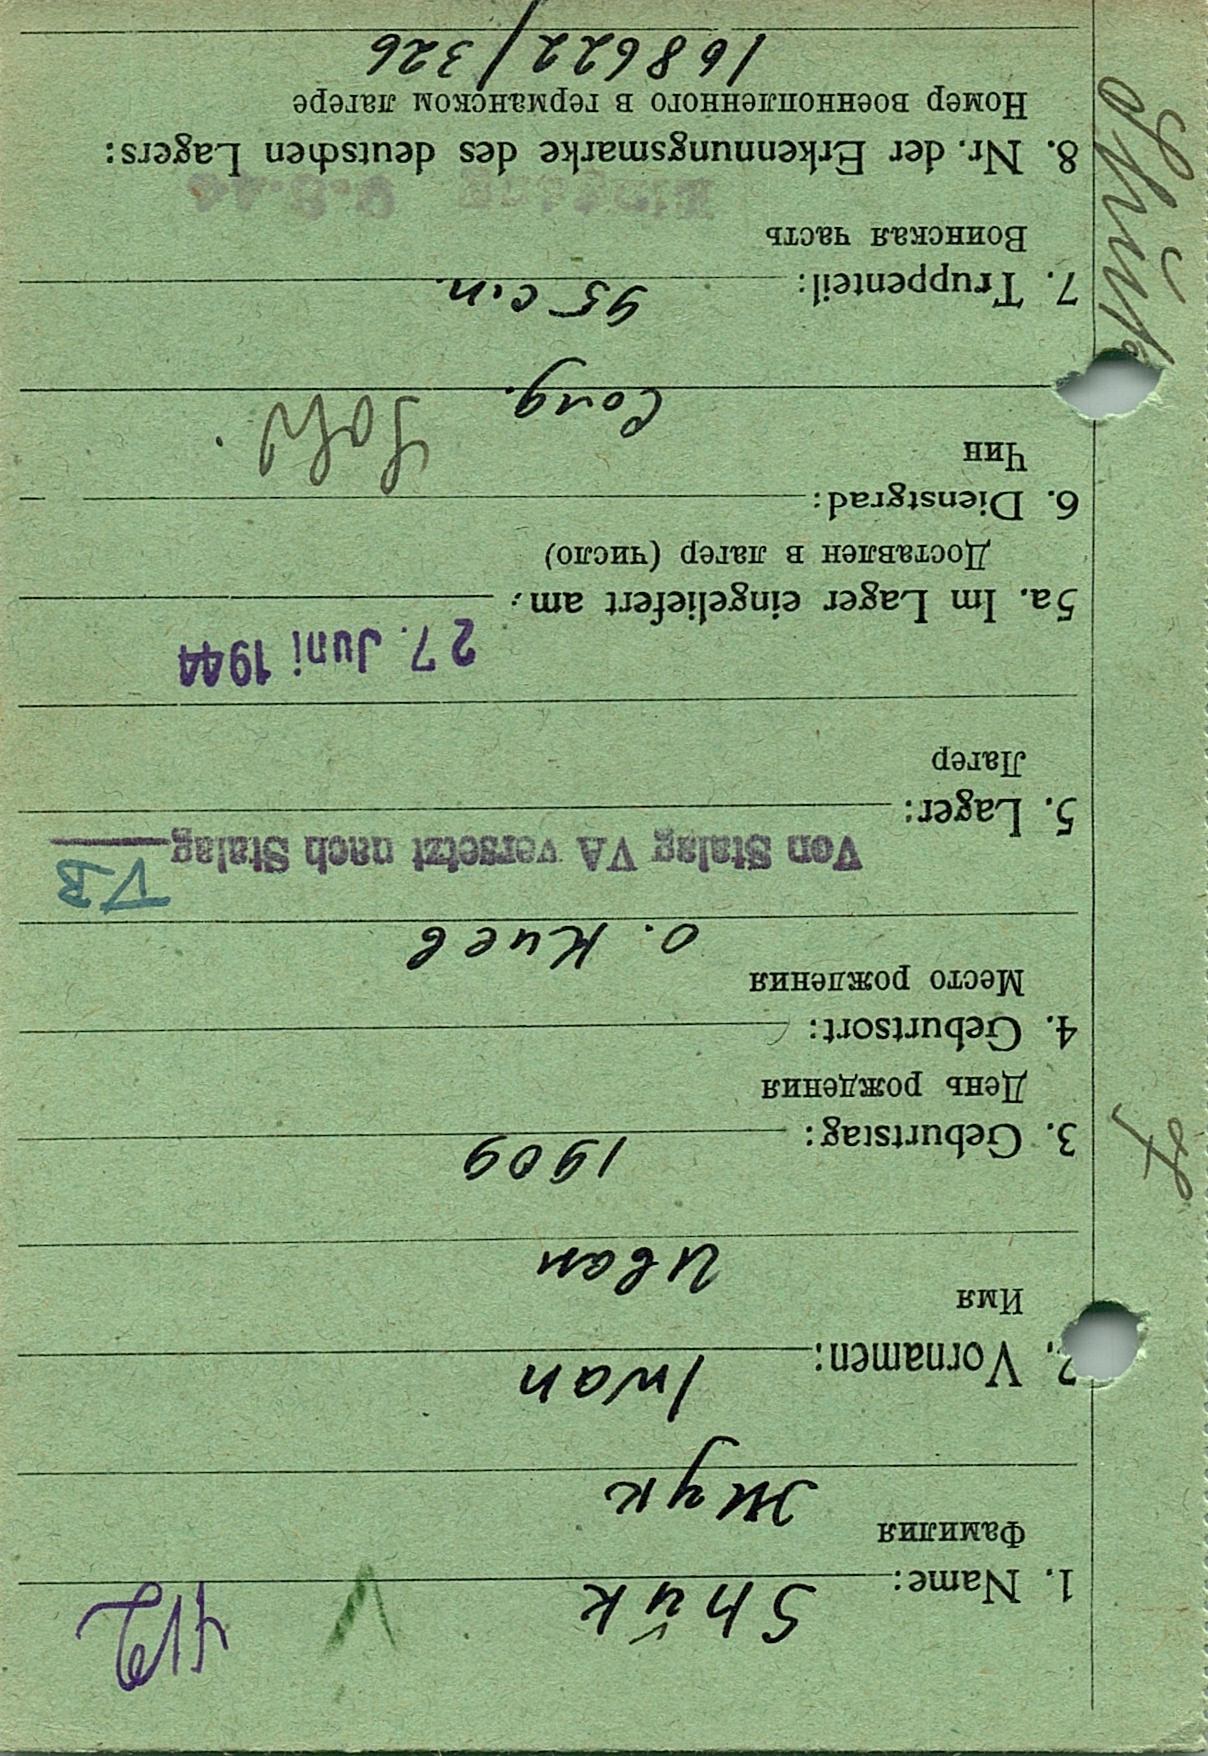 412
1. Name: Shŭk
Фамилия
Жук
2. Vornamen: Iwan
Имя
Иван
3. Geburtstag: 1909
День рождения
4. Geburtsort:
Место рождения
о. Киев
Von Stalag VA versetzt nach Stalag VB
5. Lager:
Лагер
27. Juni 1944
5a. Im Lager eingeliefert am:
Доставлен в лагер (число)
6. Dienstgrad:
Чин
Sold.
Солд.
7. Truppenteil: 95 с.п.
Воинская часть
8. Nr. der Erkennungsmarke des deutschen Lagers:
Номер военнопленного в германском лагере
168622/326